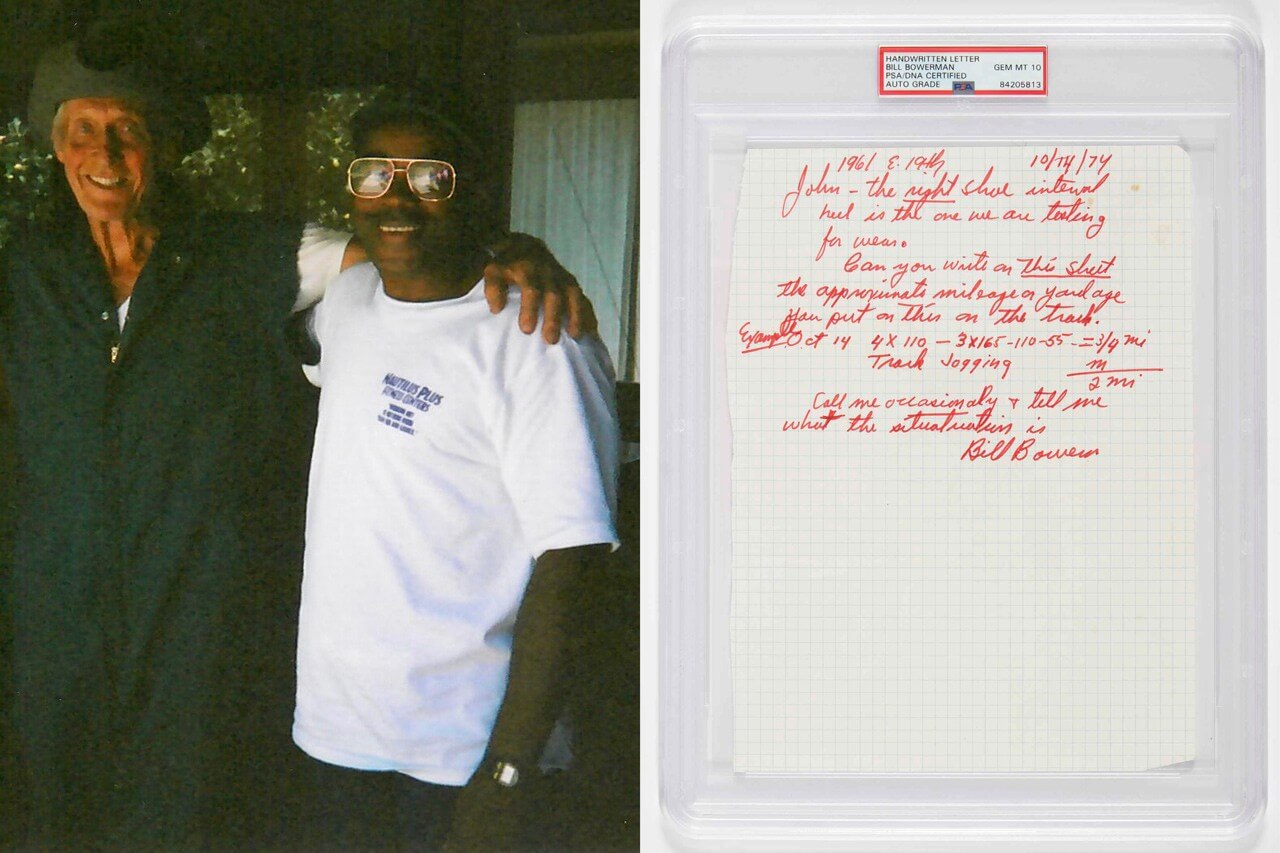 NAUTILUS PLUS
FITNESS CENTERS
HANDWRITTEN LETTER
BILL BOWERMAN GEM MT 10
PSA/DNA CERTIFIED
AUTO GRADE PSA 84205813
1961 E. 19th 10/14/74
John – the right shoe internal
heel is the one we are testing
for wear.
Can you write on this sheet
the approximate mileage or yardage
you put on this on the track.
Example Oct 14 4X110 – 3X165-110-55 = 3/4 mi
Track Jogging m
2 mi
Call me occasionaly + tell me
what the situatuation is
Bill Bowerm